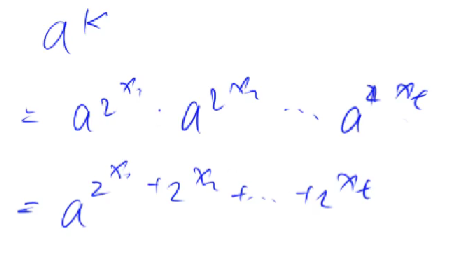 a^k
= a^{2^{x_1}} · a^{2^{x_2}} ... a^{2^{x_t}}
= a^{2^{x_1} + 2^{x_2} + ... + 2^{x_t}}